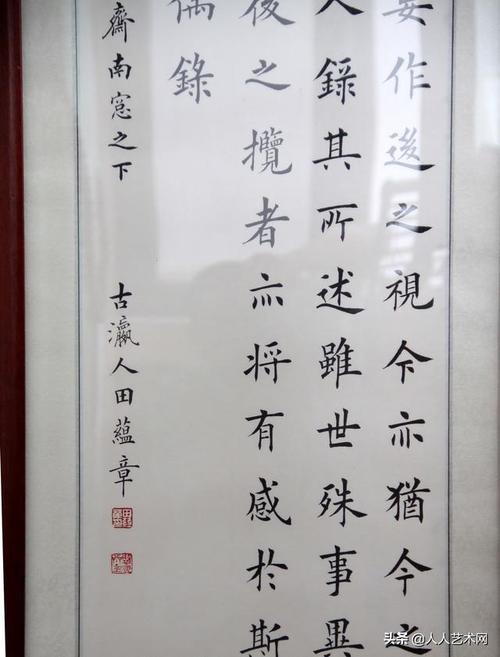 妄作後之視今亦猶今之
人錄其所述雖世殊事異
後之攬者亦将有感於斯
偶錄
齋南窓之下
古瀛人田蘊章
头条 @人人艺术网